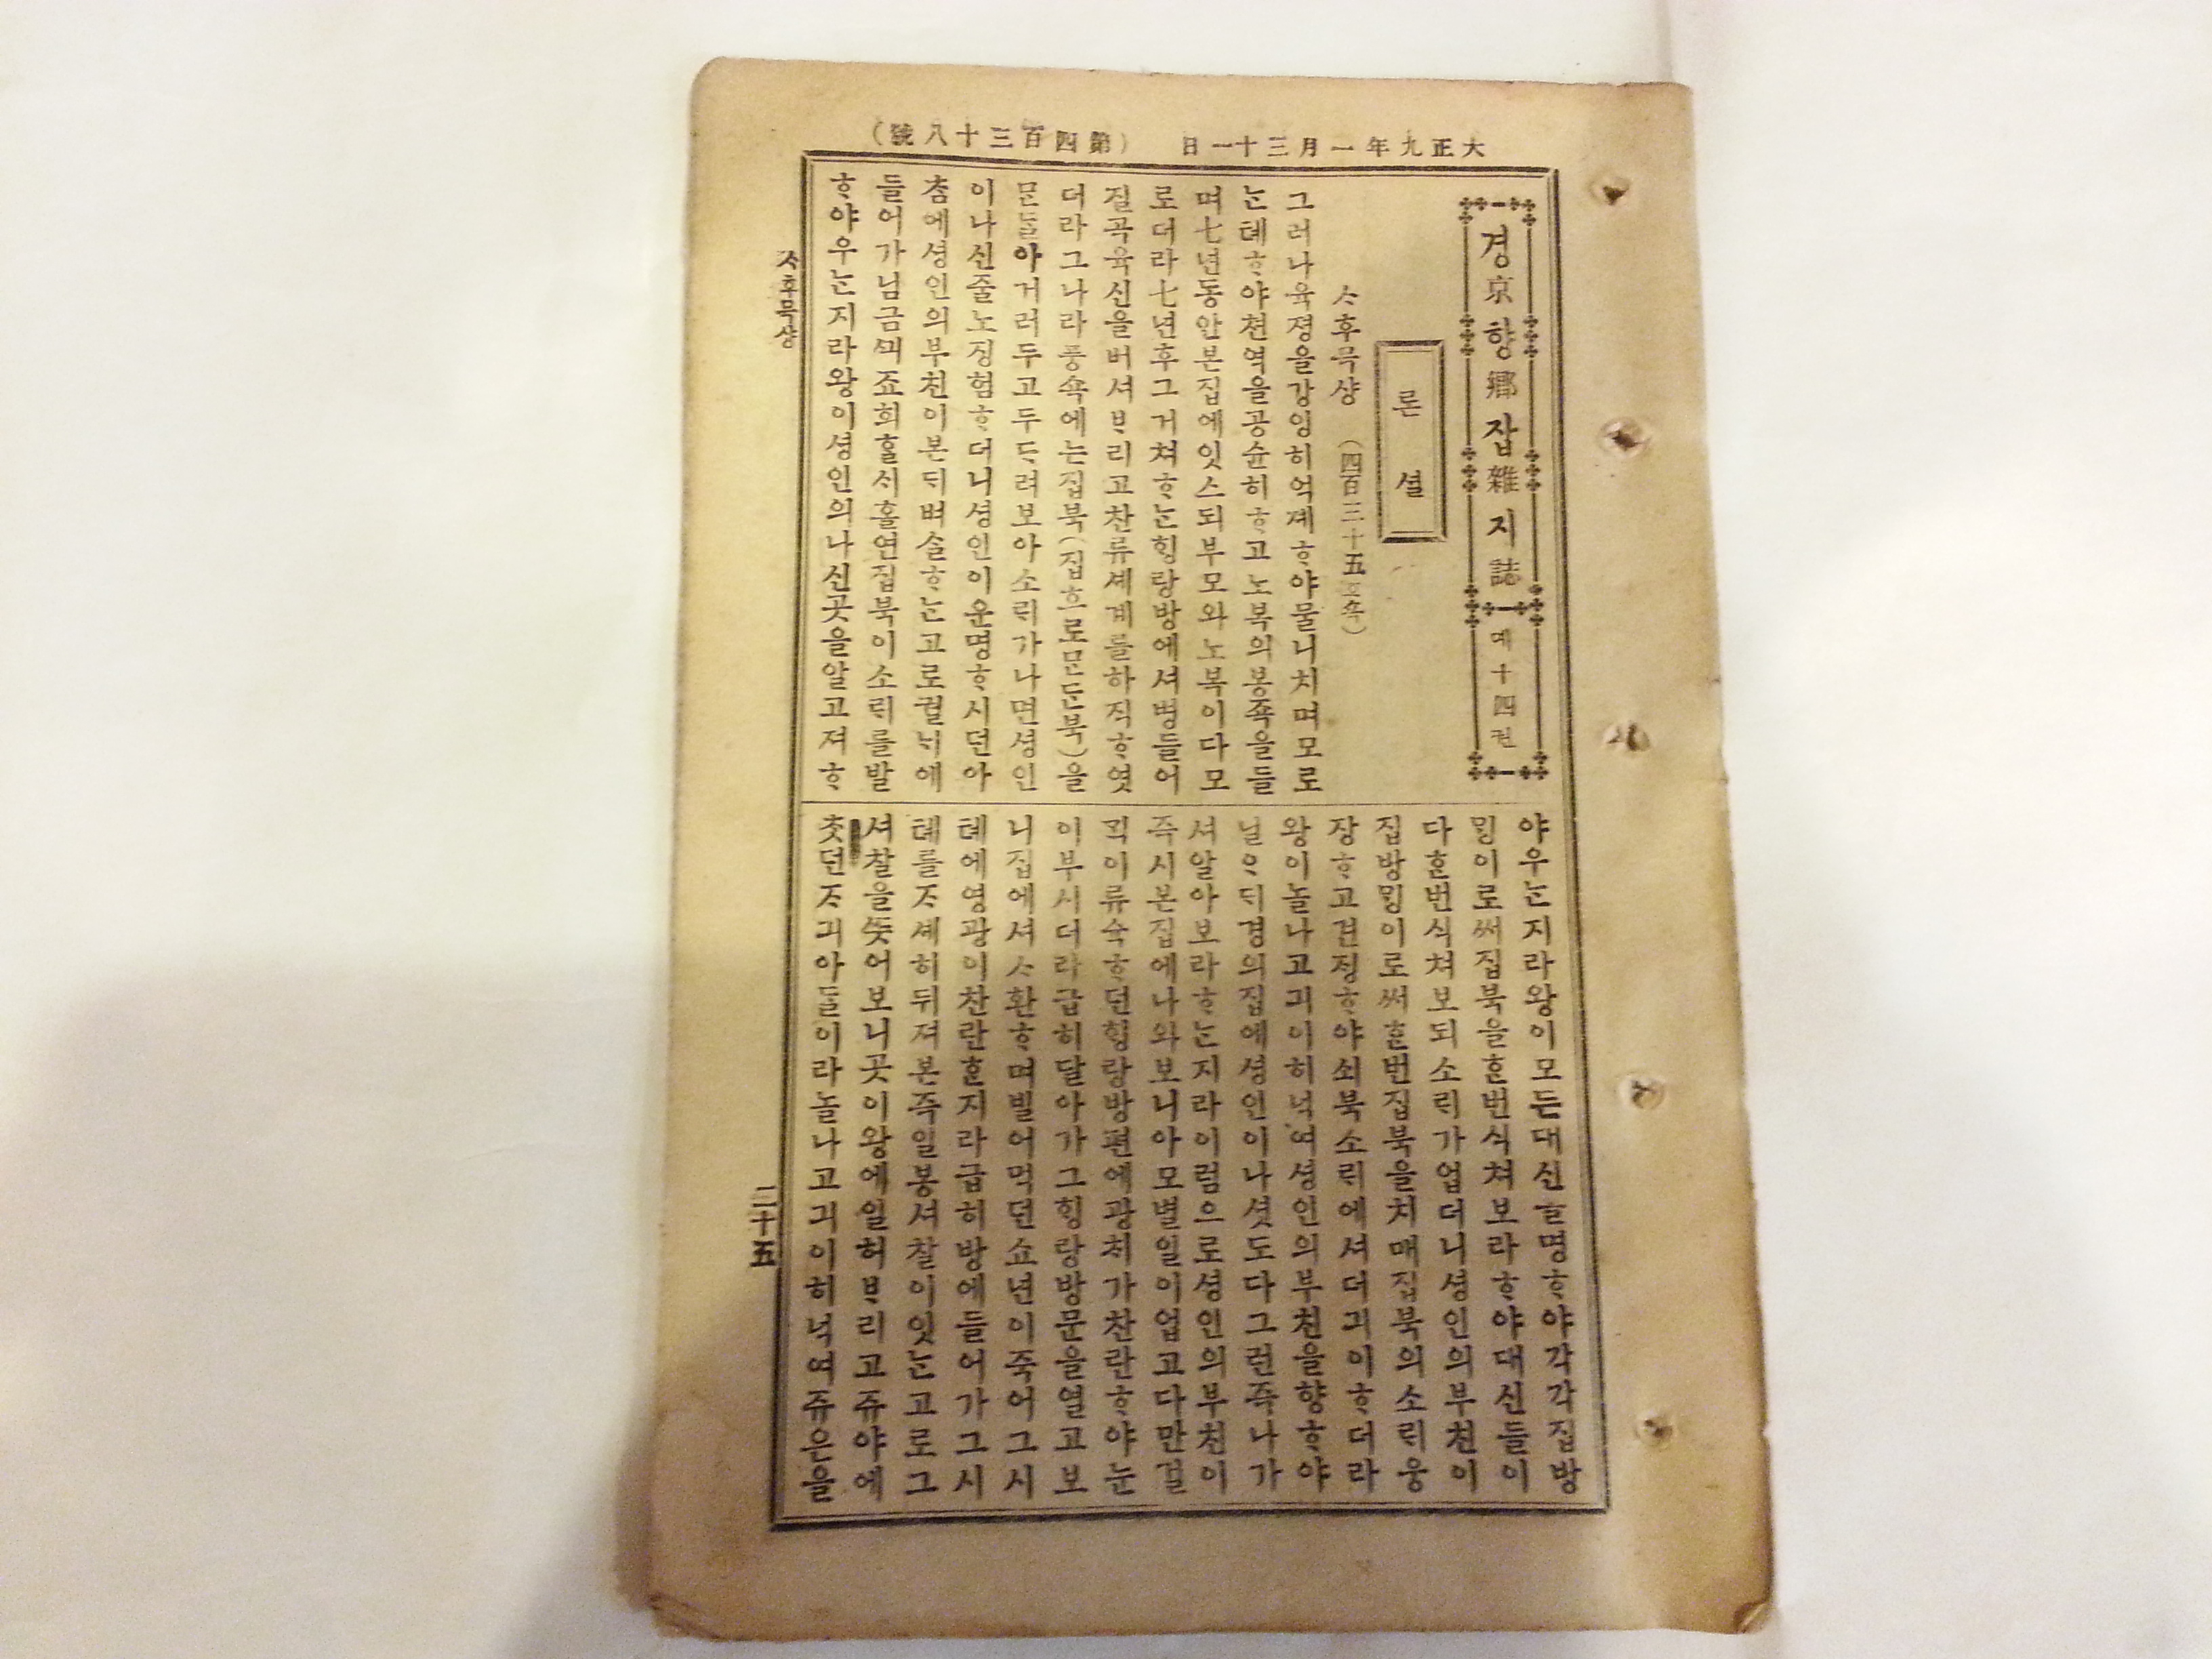 大正九年一月三十一日 (第四百三十八號)
경京향鄕잡雜지誌 뎨十四권
론셜
ᄉᆞ후묵샹 (四百三十五호쇽)
그러나육졍을강잉히억졔ᄒᆞ야물니치며모로
ᄂᆞᆫ톄ᄒᆞ야쳔역을공슌히ᄒᆞ고노복의봉죡을들
며七년동안본집에잇스되부모와노복이다모
로더라七년후그거쳐ᄒᆞᄂᆞᆫᄒᆡᆼ랑방에셔병들어
질곡육신을버셔ᄇᆞ리고찬류셰계를하직ᄒᆞ엿
더라그나라풍쇽에는집북(집흐로ᄆᆞᆫᄃᆞᆫ북)을
ᄆᆞᆫᄃᆞᆯ아거러두고두ᄃᆞ려보아소ᄅᆡ가나면셩인
이나신줄노징험ᄒᆞ더니셩인이운명ᄒᆞ시던아
ᄎᆞᆷ에셩인의부친이본ᄃᆡ벼슬ᄒᆞᄂᆞᆫ고로궐ᄂᆡ에
들어가님금ᄭᅴ죠회ᄒᆞᆯᄉᆡ홀연집북이소ᄅᆡ를발
ᄒᆞ야우ᄂᆞᆫ지라왕이셩인의나신곳을알고져ᄒᆞ
야우ᄂᆞᆫ지라왕이모든대신을명ᄒᆞ야각각집방
망이로써집북을ᄒᆞᆫ번식쳐보라ᄒᆞ야대신들이
다ᄒᆞᆫ번식쳐보되소ᄅᆡ가업더니셩인의부친이
집방망이로써ᄒᆞᆫ번집북을치매집북의소ᄅᆡ웅
장ᄒᆞ고견징ᄒᆞ야쇠북소ᄅᆡ에셔더긔이ᄒᆞ더라
왕이놀나고긔이히넉여셩인의부친을향ᄒᆞ야
닐ᄋᆞᄃᆡ경의집에셩인이나셧도다그런즉나가
셔알아보라ᄒᆞᄂᆞᆫ지라이럼으로셩인의부친이
즉시본집에나와보니아모별일이업고다만걸
ᄆᆡᆨ이류슉ᄒᆞ던ᄒᆡᆼ랑방편에광채가찬란ᄒᆞ야눈
이부시더라급히달아가그ᄒᆡᆼ랑방문을열고보
니집에셔ᄉᆞ환ᄒᆞ며빌어먹던쇼년이죽어그시
톄에영광이찬란ᄒᆞᆫ지라급히방에들어가그시
톄를ᄌᆞ셰히뒤져본즉일봉셔찰이잇ᄂᆞᆫ고로그
셔찰을ᄯᅳᆺ어보니곳이왕에일허ᄇᆞ리고쥬야에
ᄎᆞᆺ던ᄌᆞ긔아ᄃᆞᆯ이라놀나고긔이히넉여쥬은을
ᄉᆞ후묵샹
二十五